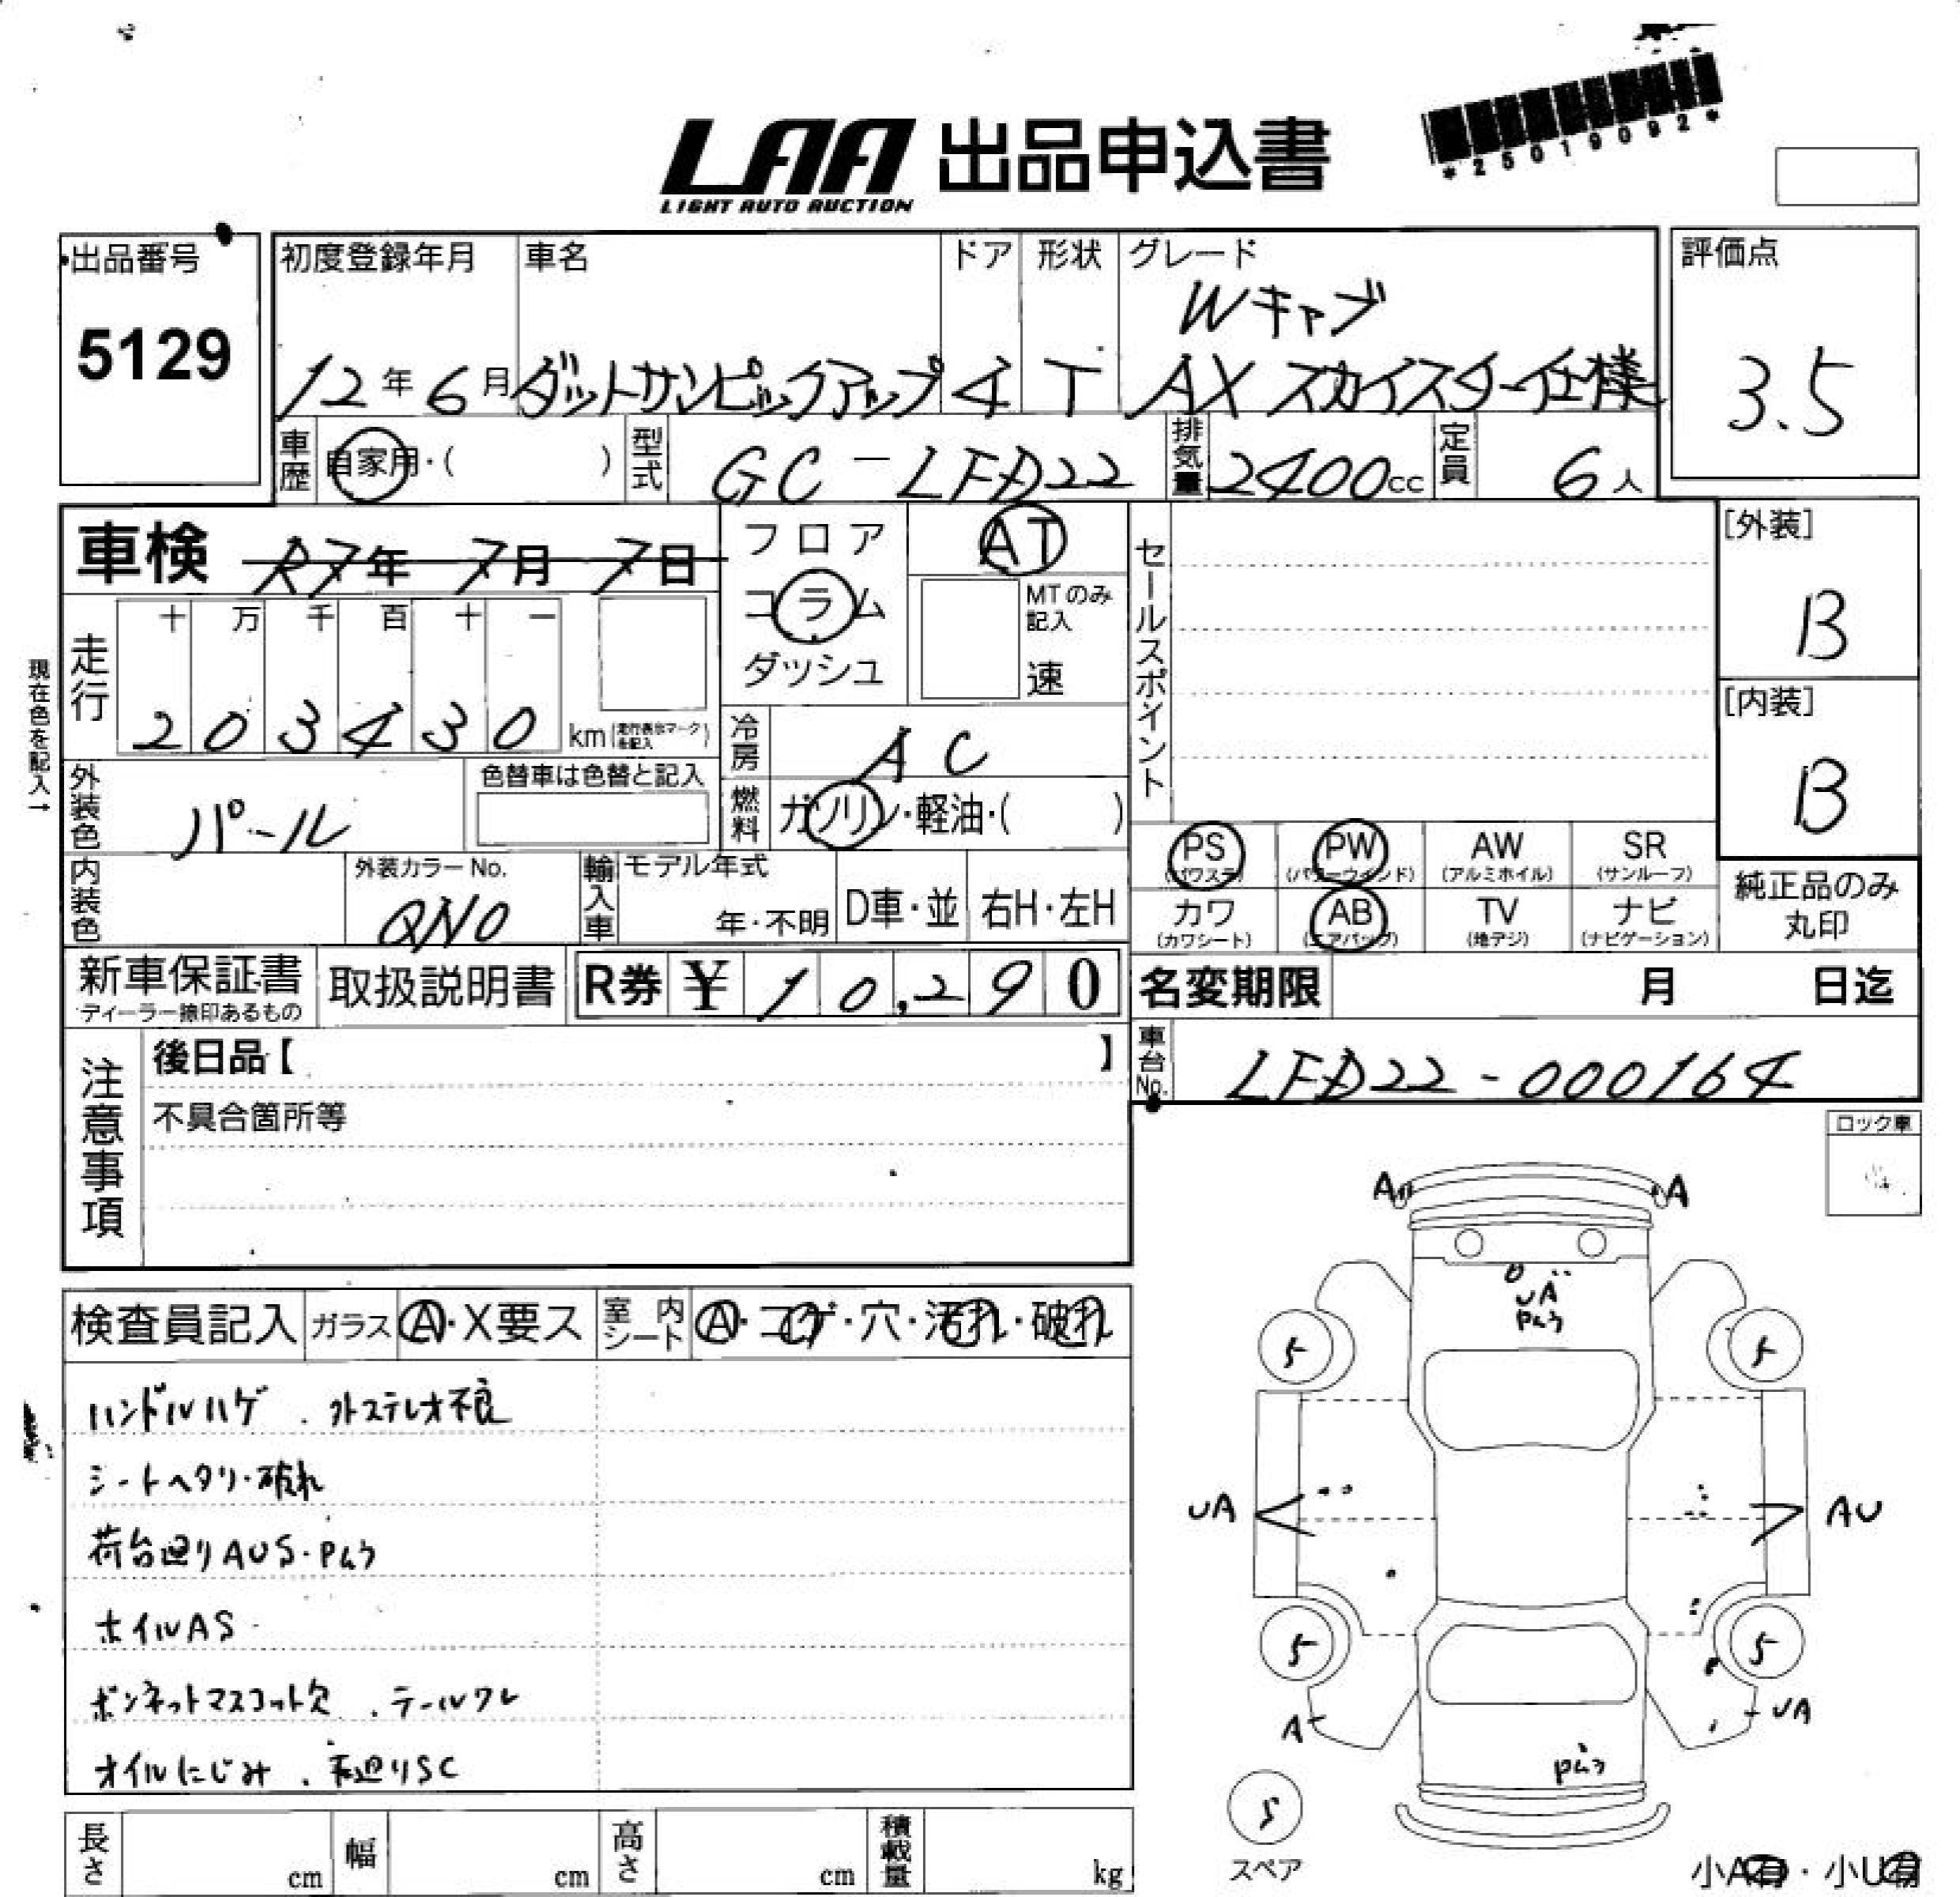 LAA 出品申込書
LIGHT AUTO AUCTION
*25019092*
出品番号
5129
初度登録年月
12年6月
車名
ダットサンピックアップ
ドア
4
形状
T
グレード
Wキャブ
AX スカイスター仕様
評価点
3.5
車歴 自家用・( )
型式 GC-LFD22
排気量 2400cc
定員 6人
車検 R7年 7月 7日
フロア
コラム
ダッシュ
AT
MTのみ記入
速
セールスポイント
[外装]
B
[内装]
B
現在色を記入→
走行
十 万 千 百 十 一
2 0 3 4 3 0 km(走行表示マークを記入)
冷房 AC
燃料 ガソリン・軽油・( )
外装色 パール
色替車は色替と記入
内装色
外装カラーNo.
QN0
輸入車
モデル年式
年・不明
D車・並
右H・左H
PS (パワステ)
PW (パワーウインド)
AW (アルミホイル)
SR (サンルーフ)
カワ (カワシート)
AB (エアバック)
TV (地デジ)
ナビ (ナビゲーション)
純正品のみ
丸印
新車保証書
ディーラー捺印あるもの
取扱説明書
R券 ¥ 10,290
名変期限 月 日迄
車台No. LFD22-000164
注意事項
後日品【 】
不具合箇所等
ロック車
検査員記入
ガラス A・X要ス
室内シート A・コゲ・穴・汚れ・破れ
ハンドルハゲ . 外ステレオ不良
シートヘタリ・破れ
荷台廻りAUS・Pムラ
ホイルAS
ボンネットマスコット欠 . テールワレ
オイルにじみ . 下廻りSC
A A
UA
Pムラ
5 5
UA AU
5 5
A UA
Pムラ
5
スペア
小A有・小U有
長さ cm
幅 cm
高さ cm
積載量 kg